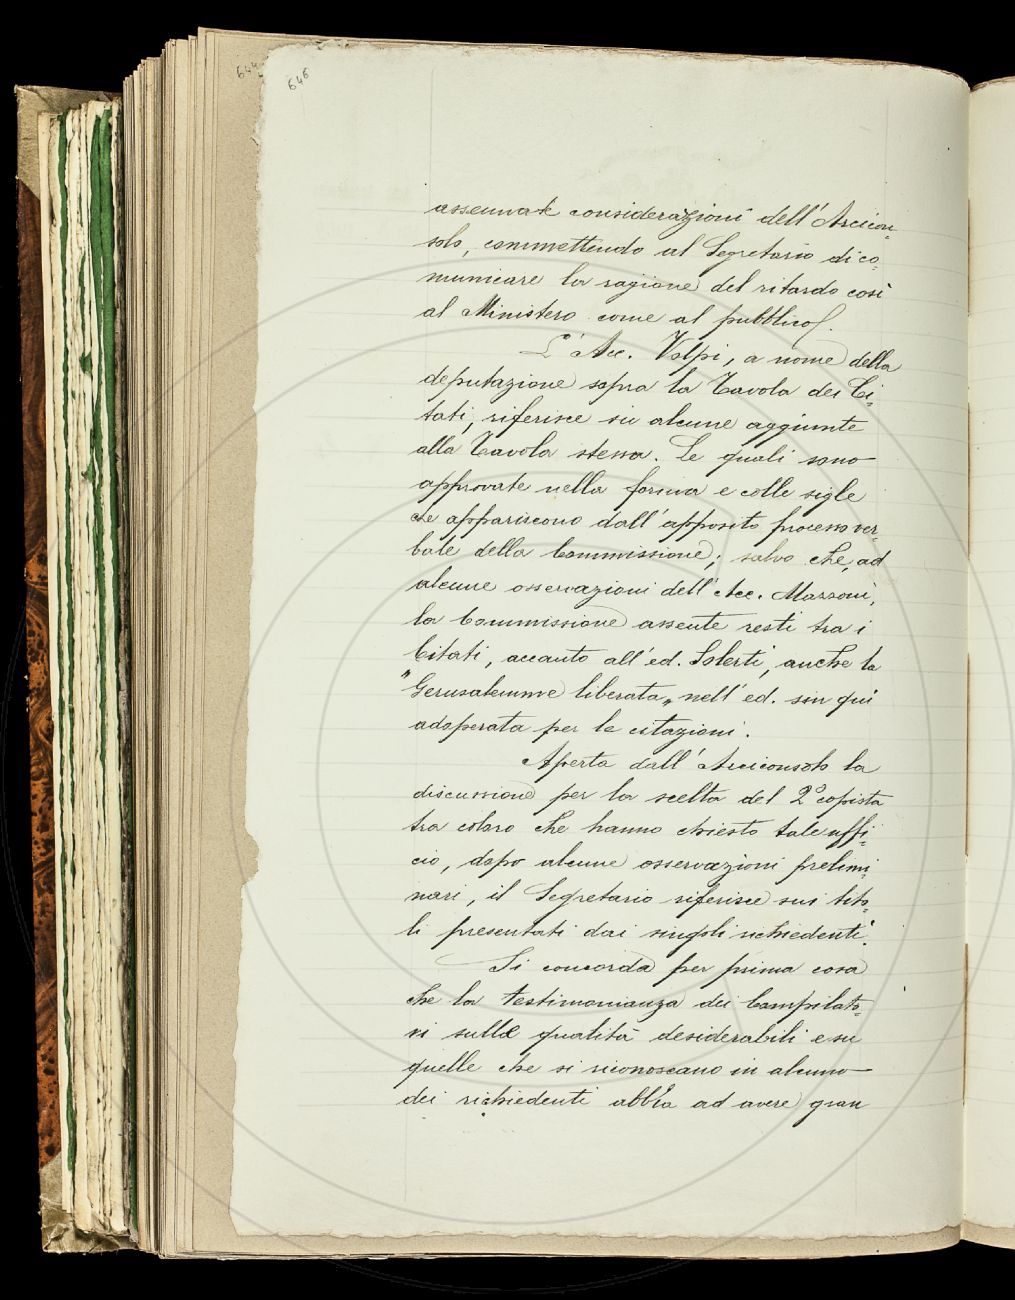 644
646
assennate considerazioni dell'Arcicon-
solo, commettendo al Segretario di co-
municare la ragione del ritardo così
al Ministero come al pubblico.
L'Acc. Volpi, a nome della
deputazione sopra la Tavola dei Ci-
tati, riferisce su alcune aggiunte
alla Tavola stessa. Le quali sono
approvate nella forma e colle sigle
che appariscono dall'apposito processo ver-
bale della Commissione; salvo che, ad
alcune osservazioni dell'Acc. Mazzoni,
la Commissione assente resti tra i
Citati, accanto all'ed. Solerti, anche la
"Gerusalemme liberata„ nell'ed. sin quì
adoperata per le citazioni.
Aperta dall'Arciconsolo la
discussione per la scelta del 2º copista
tra coloro che hanno chiesto tale uffi-
cio, dopo alcune osservazioni prelimi-
nari, il Segretario riferisce sui tito-
li presentati dai singoli richiedenti.
Si concorda per prima cosa
che la testimonianza dei Compilato-
ri sulle qualità desiderabili e su
quelle che si riconoscano in alcuno
dei richiedenti abbia ad avere gran